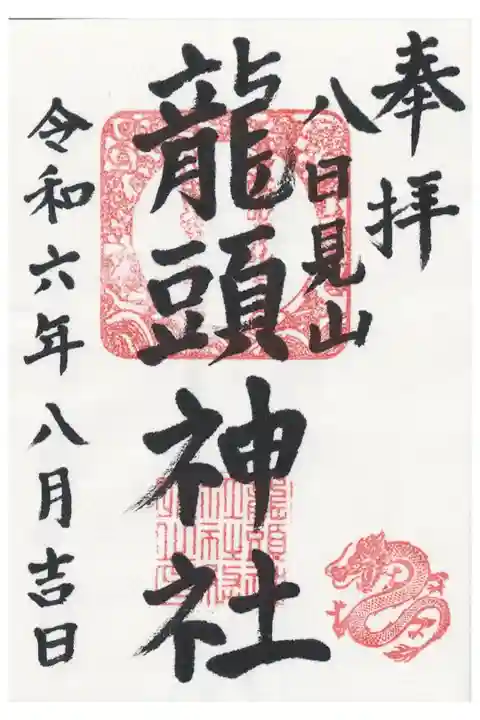 奉拝
八日見山
龍頭神社
令和六年八月吉日